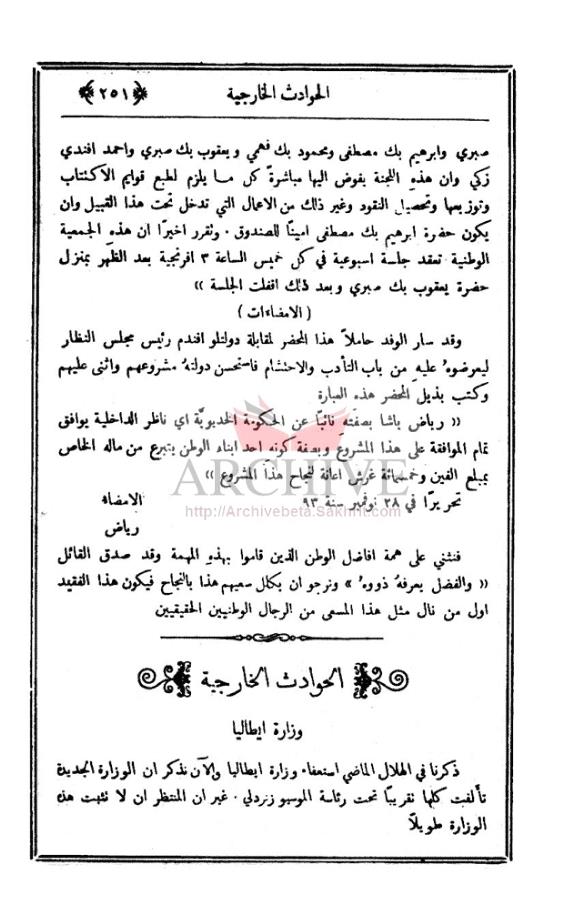 الحوادث الخارجية ﴿٢٥١﴾
صبري وابرهيم بك مصطفى ومحمود بك فهمي ويعقوب بك صبري واحمد افندي
زكي وان هذهِ اللجنة يفوض اليها مباشرة كل ما يلزم لطبع قوايم الاكتتاب
وتوزيعها وتحصيل النقود وغير ذلك من الاعمال التي تدخل تحت هذا القبيل وان
يكون حضرة ابرهيم بك مصطفى امينًا للصندوق . وتقرر اخيرًا ان هذه الجمعية
الوطنية تعقد جلسة اسبوعية في كل خميس الساعة ٣ افرنجية بعد الظهر بمنزل
حضرة يعقوب بك صبري وبعد ذلك اقفلت الجلسة »
( الامضاءات )
وقد سار الوفد حاملاً هذا المحضر لمقابلة دولتلو افندم رئيس مجلس النظار
ليعرضوهُ عليهِ من باب التأدب والاحتشام فاستحسن دولتهُ مشروعهم واثنى عليهم
وكتب بذيل المحضر هذه العبارة
« رياض باشا بصفته نائبًا عن الحكومة الخديويَّة اي ناظر الداخلية يوافق
تمام الموافقة على هذا المشروع وبصفة كونه احد ابناء الوطن يتبرع من ماله الخاص
بمبلغ الفين وخمسمائة غرش اعانة لنجاح هذا المشروع »
تحريرًا في ٢٨ نوفمبر سنة ٩٣ الامضاء
رياض
ARCHIVE
http://Archivebeta.Sakhrit.com
فنثني على همة افاضل الوطن الذين قاموا بهذهِ المهمة وقد صدق القائل
« والفضل يعرفهُ ذووهُ » ونرجو ان يكلل سعيهم هذا بالنجاح فيكون هذا الفقيد
اول من نال مثل هذا المسعى من الرجال الوطنيين الحقيقيين
الحوادث الخارجية
وزارة ايطاليا
ذكرنا في الهلال الماضي استعفاء وزارة ايطاليا والآن نذكر ان الوزارة الجديدة
تألفت كلها تقريبًا تحت رئاسة الموسيو زنردلي . غير ان المنتظر ان لا تثبت هذه
الوزارة طويلاً